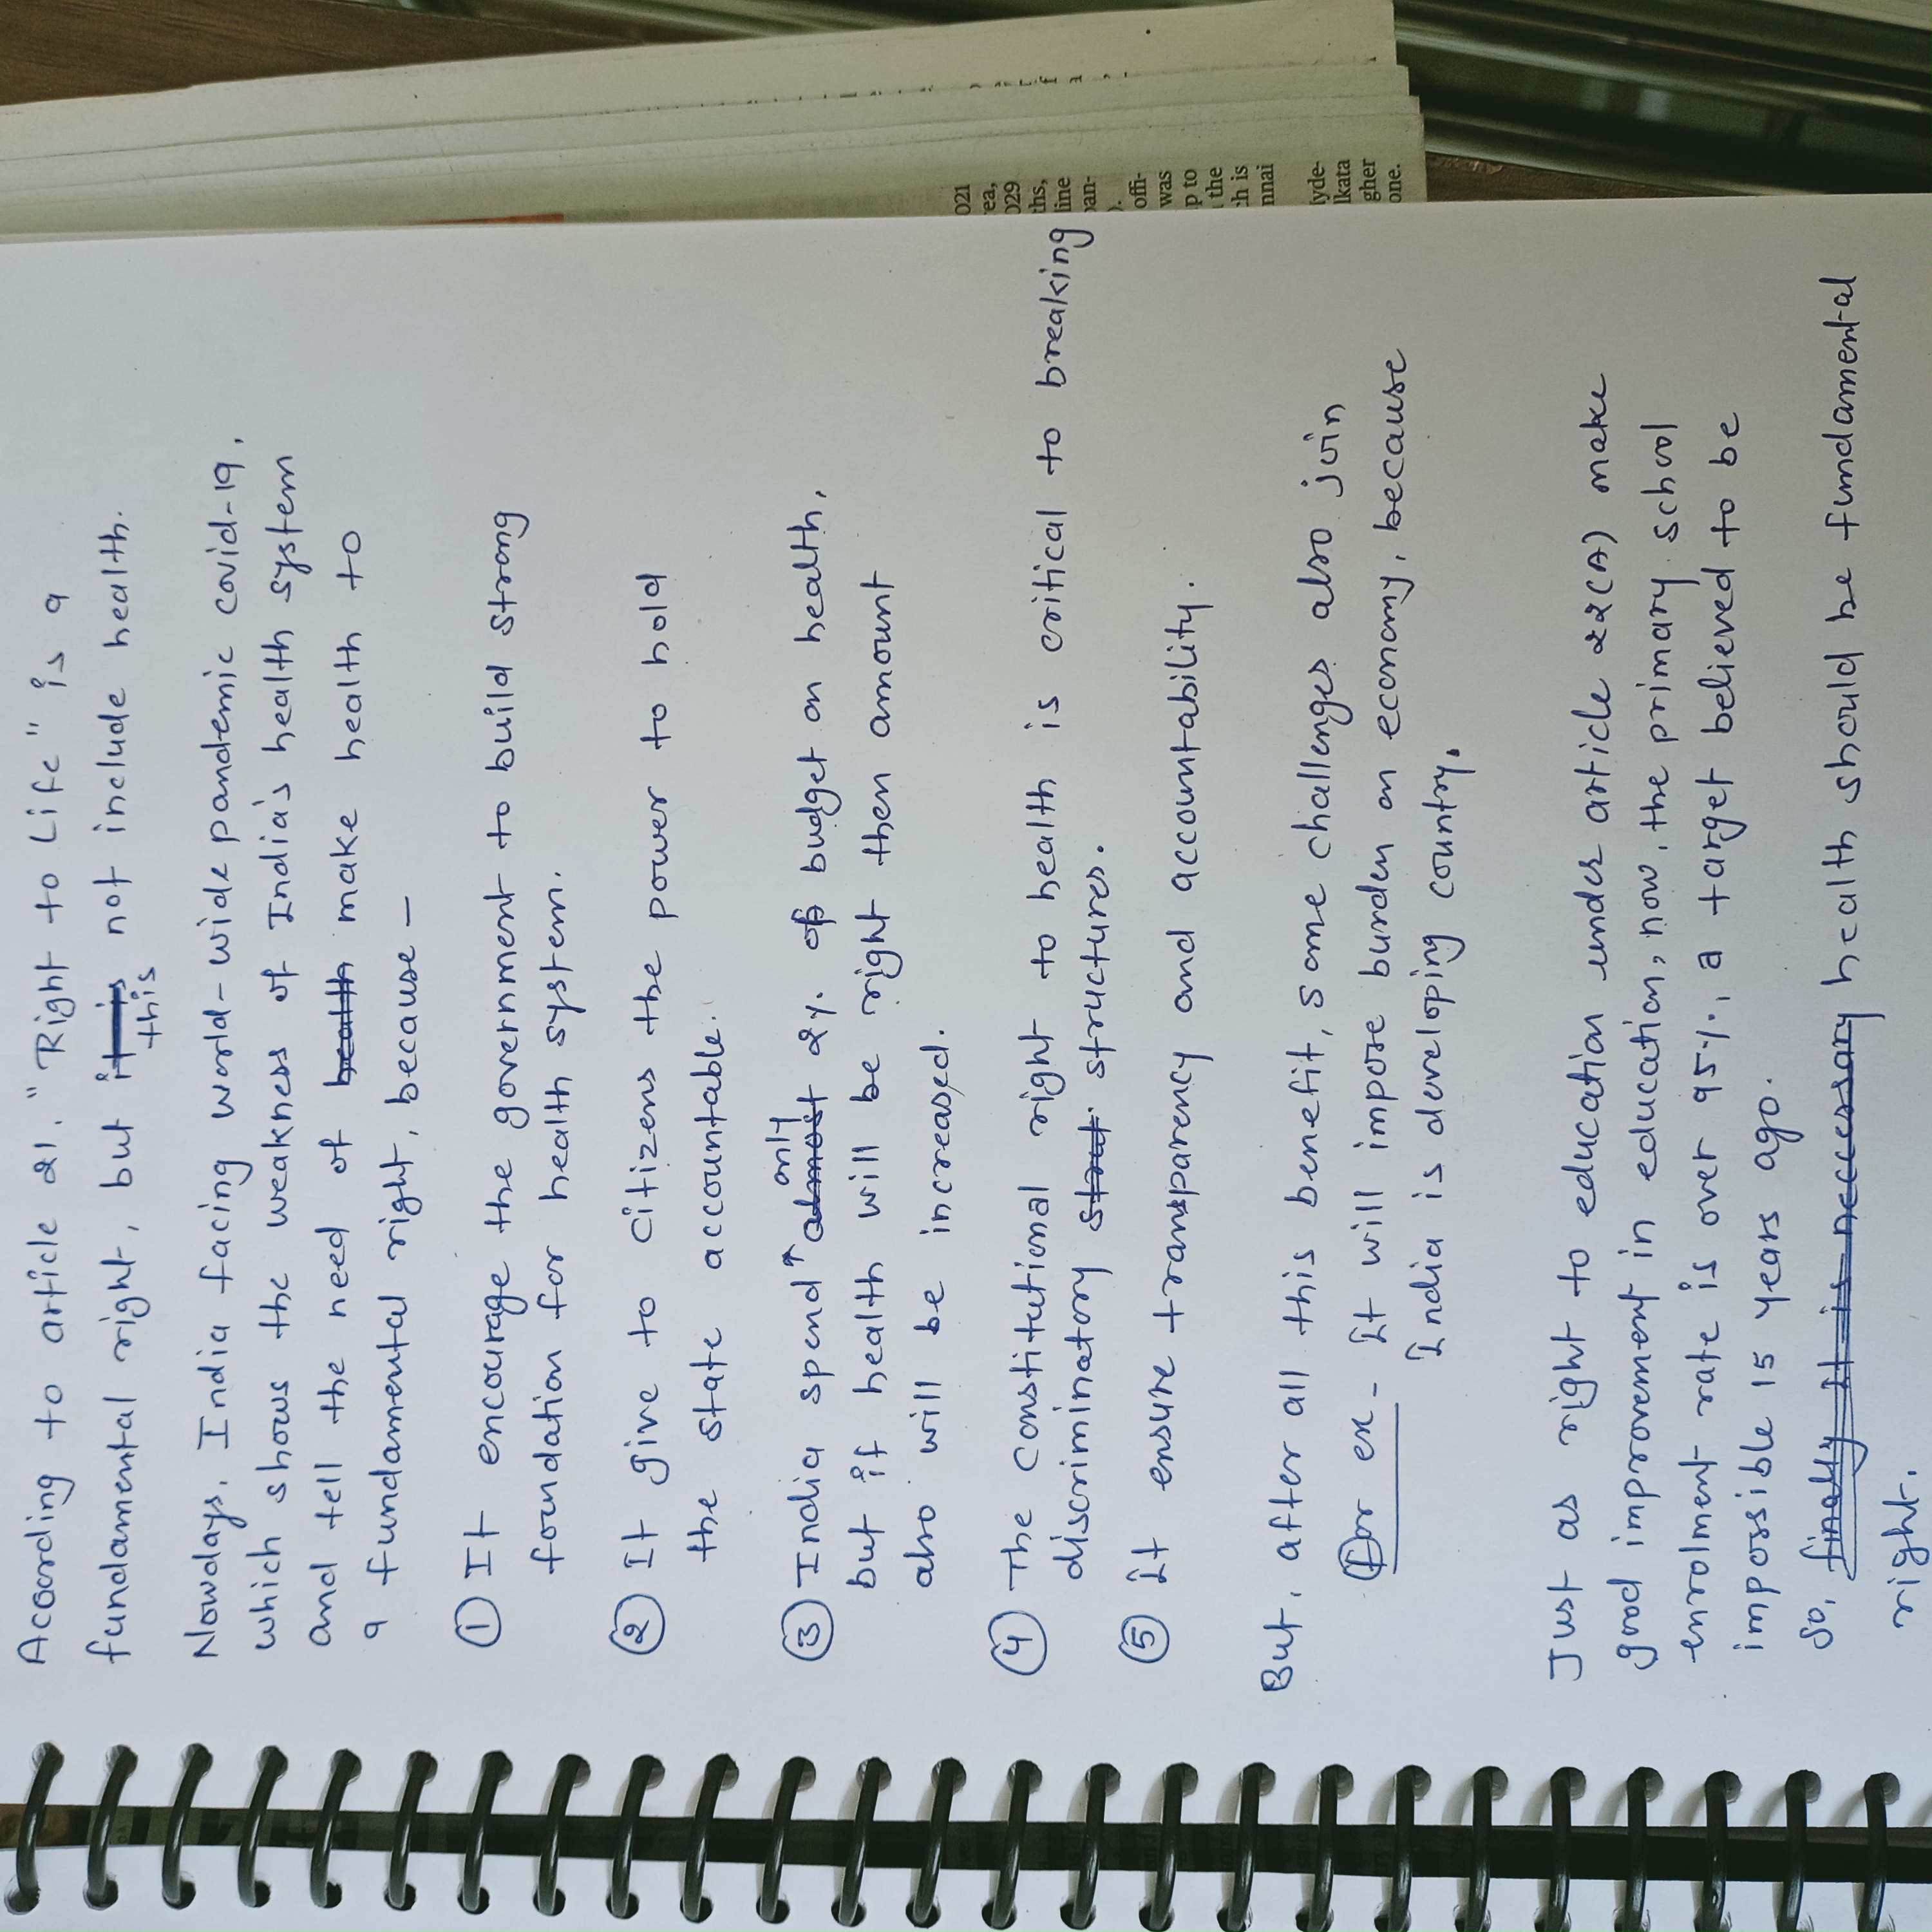 According to article 21, "Right to Life" is a
fundamental right, but it is this not include health.
Nowdays, India facing world-wide pandemic covid-19,
which shows the weakness of India's health system
and tell the need of health make health to
a fundamental right, because -
① It encourage the government to build strong
foundation for health system.
② It give to citizens the power to hold
the state accountable.
③ India spend almost only 2% of budget on health,
but if health will be right then amount
also will be increased.
④ The constitutional right to health is critical to breaking
discriminatory strut structures.
⑤ it ensure transparency and accountability.
But, after all this benefit, some challenges also join
for ex - it will impose burden on economy, because
India is developing country.
Just as right to education under article 22(A) make
good improvement in education, now, the primary school
enrolment rate is over 95%, a target believed to be
impossible 15 years ago.
So, finally it is neccessary health should be fundamental
right.
021
ea,
029
ths,
line
pan-
).
offi-
was
p to
the
h is
nnai
lyde-
lkata
gher
one.